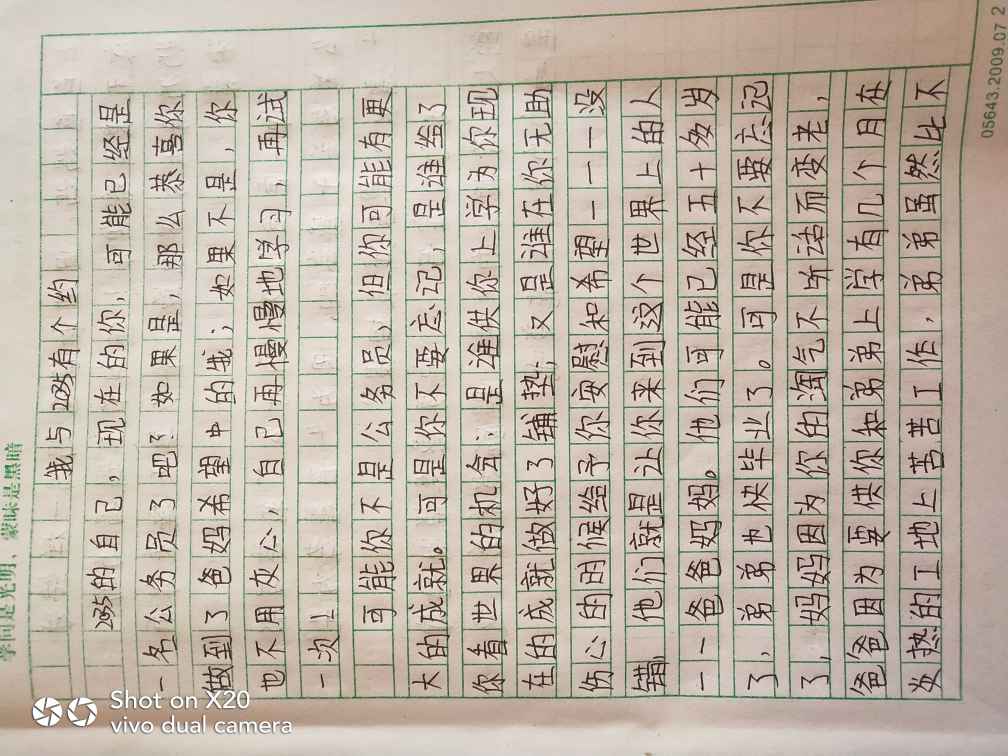 学问是光明，蒙昧是黑暗
我与2035有个约
2035的自己，现在的你，可能已经是
一名公务员了吧？如果是，那么恭喜你
做到了爸妈希望中的我；如果不是，你
也不用灰心，自己再慢慢地学习，再试
一次！
可能你不是公务员，但你可能有更
大的成就。可是你不要忘记，是谁给了
你看世界的机会；是谁供你上学为你现
在的成就做好了铺垫；又是谁在你无助
伤心的时候给予你安慰和希望———没
错，他们就是让你来到这个世界上的人
——爸爸妈妈。他们可能已经五十多岁
了，弟弟也快毕业了。可是你不要忘记
了，妈妈因为你的淘气不听话而变老，
爸爸因为要供你和弟弟上学有几个月在
炎热的工地上苦苦工作，弟弟虽然比不
05643.2009.07 2
Shot on X20
vivo dual camera